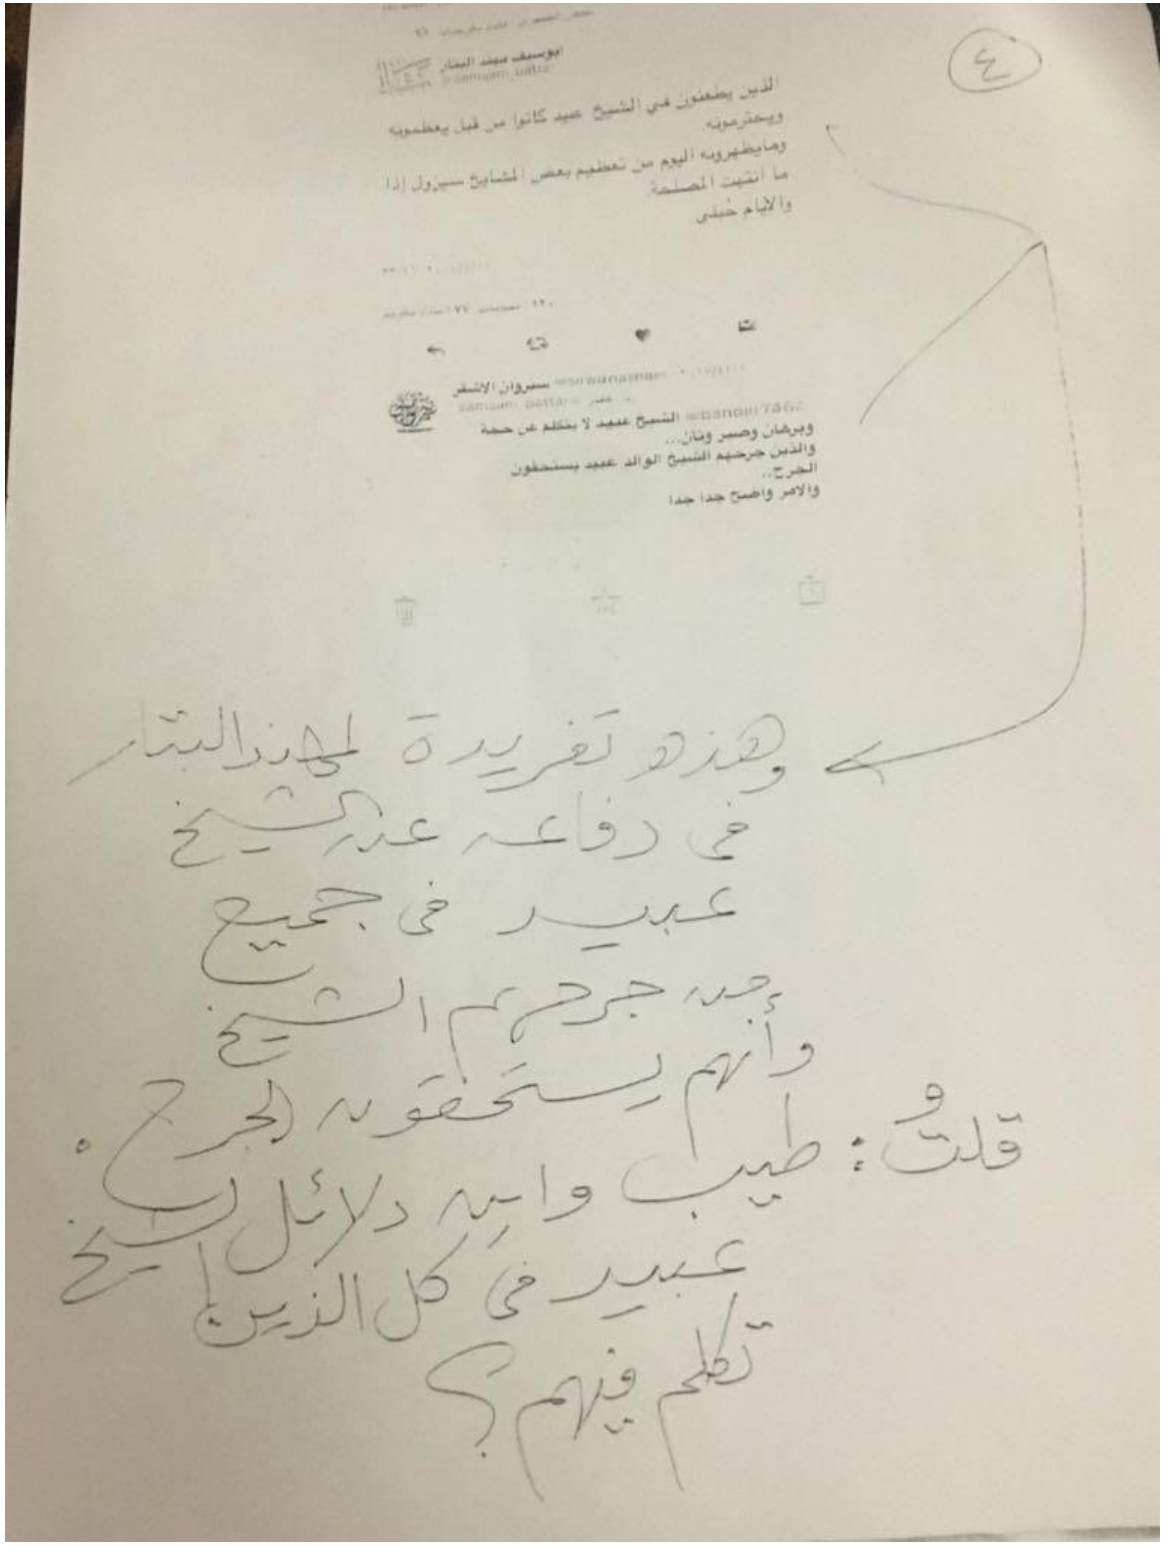 ٤
ابوسيف مهند البتار
الذين يطعنون في الشيخ عبيد كانوا من قبل يعظمونه
ويحترمونه
ومايظهرونه اليوم من تعظيم بعض المشايخ سيزول إذا
ما انتهت المصلحة
والايام حُبلى
سيروان الاشقر
@bander7462 الشيخ عبيد لا يتكلم عن حجة
وبرهان وصبر وتأن...
والذين جرحهم الشيخ الوالد عبيد يستحقون
الجرح..
والامر واضح جدا جدا
وهذه تغريدة لمهند البتار
في دفاعه عن الشيخ
عبيد في جميع
من جرحهم الشيخ
وأنهم يستحقون الجرح.
قلتُ: طيب وأين دلائل الشيخ
عبيد في كل الذين
تكلم فيهم؟